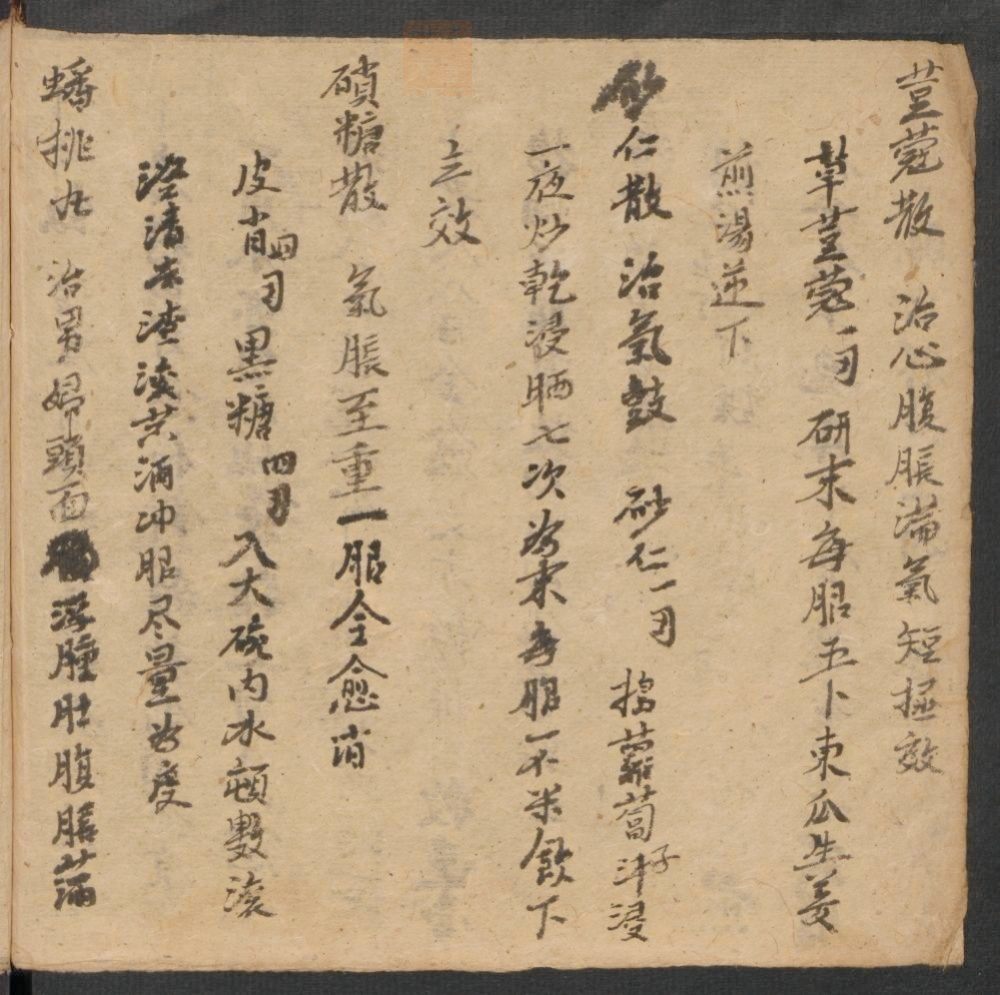 荳蔻散 治心腹脹滿氣短極效
草荳蔻一刃 研末每服五卜東瓜生姜
煎湯送下
砂仁散 治氣鼓 砂仁一刃 搗蘿蔔子汁浸
一夜炒乾浸晒七次為末每服一不米飲下
立效
硝糖散 氣脹至重一服全愈消
皮肖四刃 黑糖四刃 入大碗內水頓數滾
澄清去渣淡黃酒冲服尽量為度
蟠桃丸 治男婦頭面浮腫肚腹膨滿